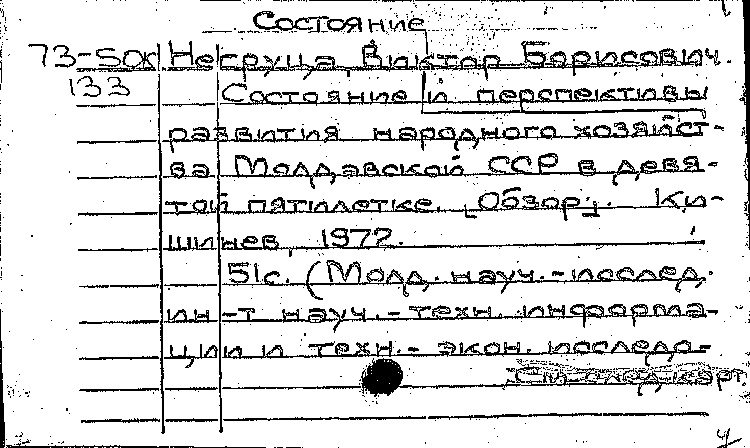 Состояние
73-50к Негруца, Виктор Борисович.
133 Состояние и перспективы
развития народного хозяйст-
ва Молдавской ССР в девя-
той пятилетке. [Обзор]. Ки-
шинев, 1972.
51с. (Молд. науч.-исслед.
ин-т науч.-техн. информа-
ции и техн.-экон. исследо-
См. след. карт.